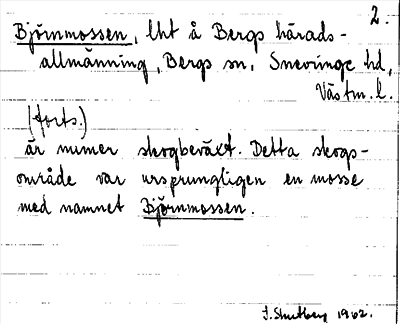 2.
Björnmossen, lht å Bergs härads-
allmänning, Bergs sn, Snevringe hd,
Västm. l.
(forts.)
är numer skogbeväxt. Detta skogs-
område var ursprungligen en mosse
med namnet Björnmossen.
1962.